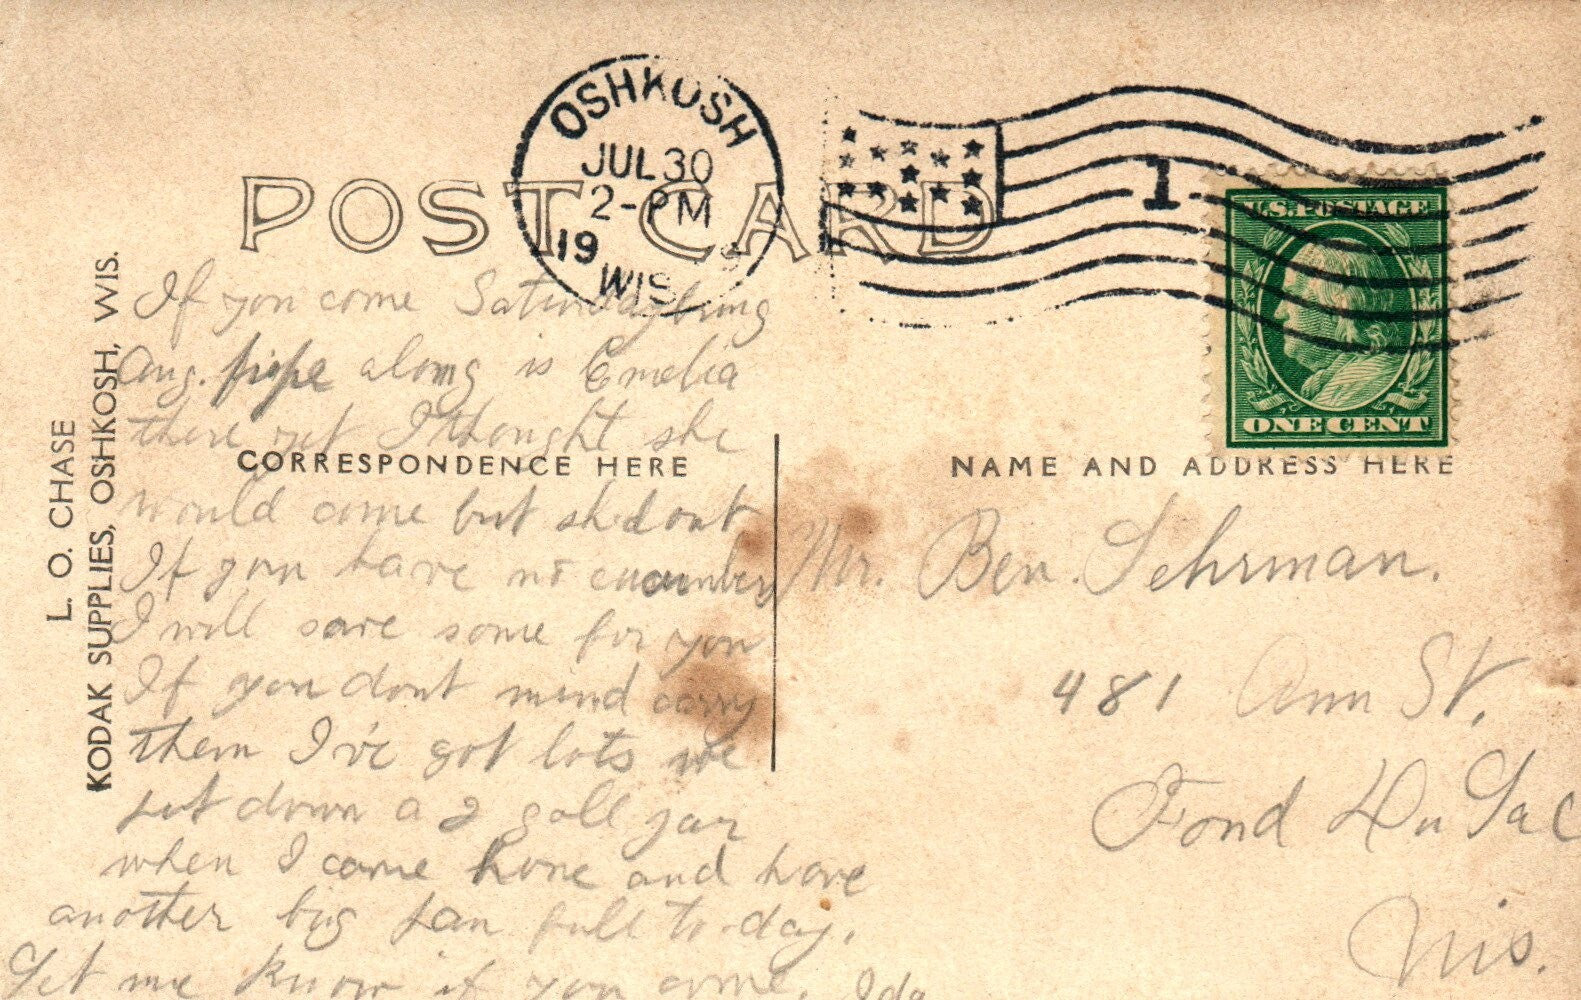 OSHKOSH
JUL 30
2-PM
19
WIS
1
U.S. POSTAGE
ONE CENT
POST CARD
L. O. CHASE
KODAK SUPPLIES, OSHKOSH, WIS.
CORRESPONDENCE HERE
NAME AND ADDRESS HERE
If you come Saturday bring
Aug. pipe along is Emelia
there yet I thought she
would come but she dont
If you have no cucumbers
I will save some for you
If you dont mind carry
them I've got lots we
put down a 2 gall jar
when I came home and have
another big pan full to-day.
Let me know if you come. Ida
Mr. Ben. Lehrman.
481 Ann St.
Fond Du Lac
Wis.